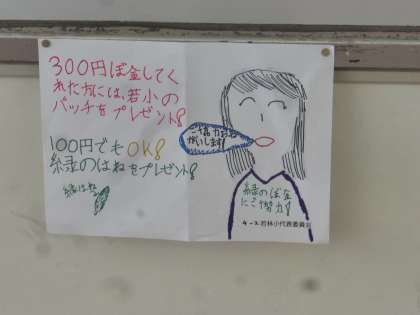 300円ぼ金してく
れた方には、若小の
バッチをプレゼント!
100円でもOK!
緑のはねをプレゼント!
緑はね
ご協力おね
がいします!
緑のぼ金
にご協力!
4-2 若林小代表委員会